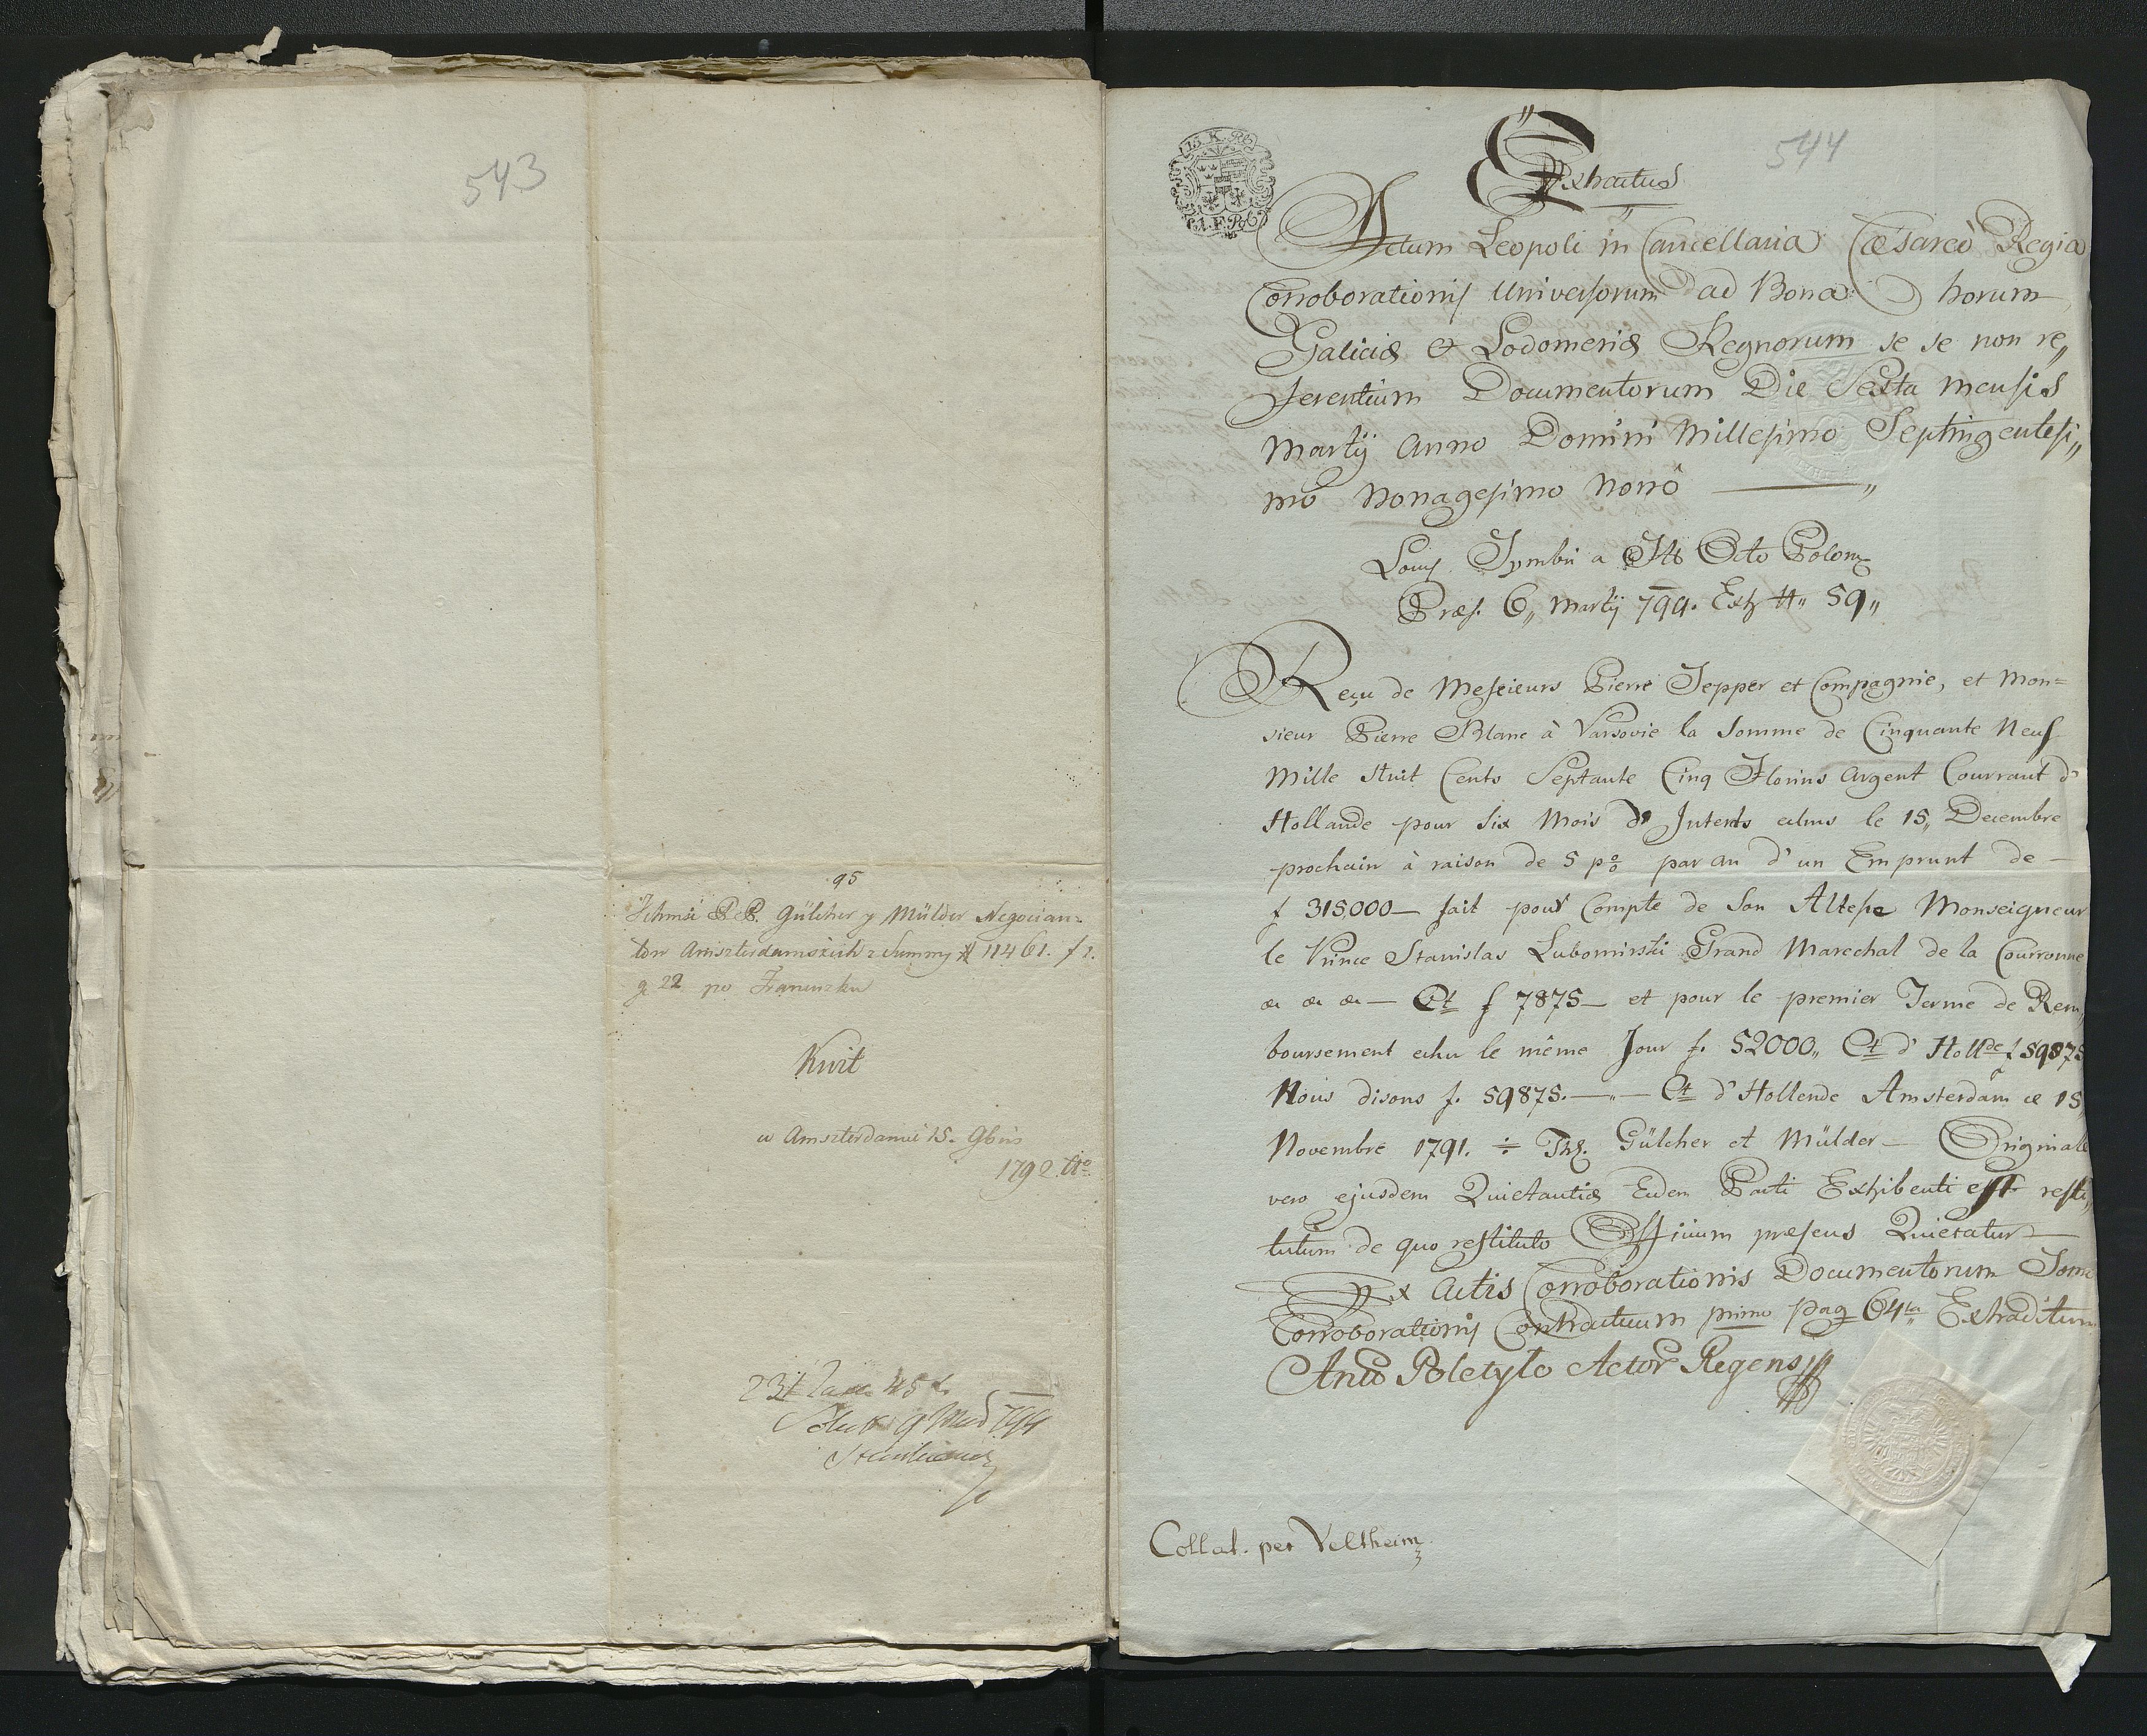 543
95
Ichmci PP. Gülcher y Mülder Negocian=
tow Amszterdamskich z Summy # 11461. f 2.
g 22 po Francuzku
Kwit
w Amszterdamie 15. 9bris
1792. Ao
544
15. K. R.
1. F. R.
Extractus
Actum Leopoli in Cancellaria Cæsareo Regia
Corroborationis Universorum ad Bona horum
Galiciæ & Lodomeriæ Regnorum se se non re„
ferentium Documentorum Die Sexta mensis
Martij Anno Domini Millesimo Septingentesi„
mo Nonagesimo Nonô
a Octo Polon
Præs. 6„ Martij 799. Exh # „ 59„
Reçu de Messieurs Pierre Tepper et Compagnie, et Mon=
sieur Pierre Blanc à Varsovie la Somme de Cinquante Neuf
Mille Huit Cents Septante Cinq Florins Argent Courrant d'
Hollande pour Six Mois d' Interets echus le 15„ Decembre
prochain à raison de 5 po par an d'un Emprunt de —
f 315000— fait pour Compte de Son Altesse Monseigneur
le Prince Stanislas Lubomirski Grand Marechal de la Couronne
&c &c &c — Ct f 7875— et pour le premier Terme de Rem„
boursement echu le même Jour f. 52000„ Ct d' Hollde f 59875
Nous disons f. 59875.—„— Ct d' Hollende Amsterdam ce 15
Novembre 1791. ÷ Ths. Gülcher et Mülder — Originale
vero ejusdem Quietantiæ Eidem Parti Exhibenti est resti„
tutum de quo restituto Officium præsens Quietatur —
Ex Actis Corroborationis Documentorum Tomo
Corroborationis Contractuum primo pag 64ta Extraditum
Anto Poletylo Actor Regens
Collat. per Veltheim